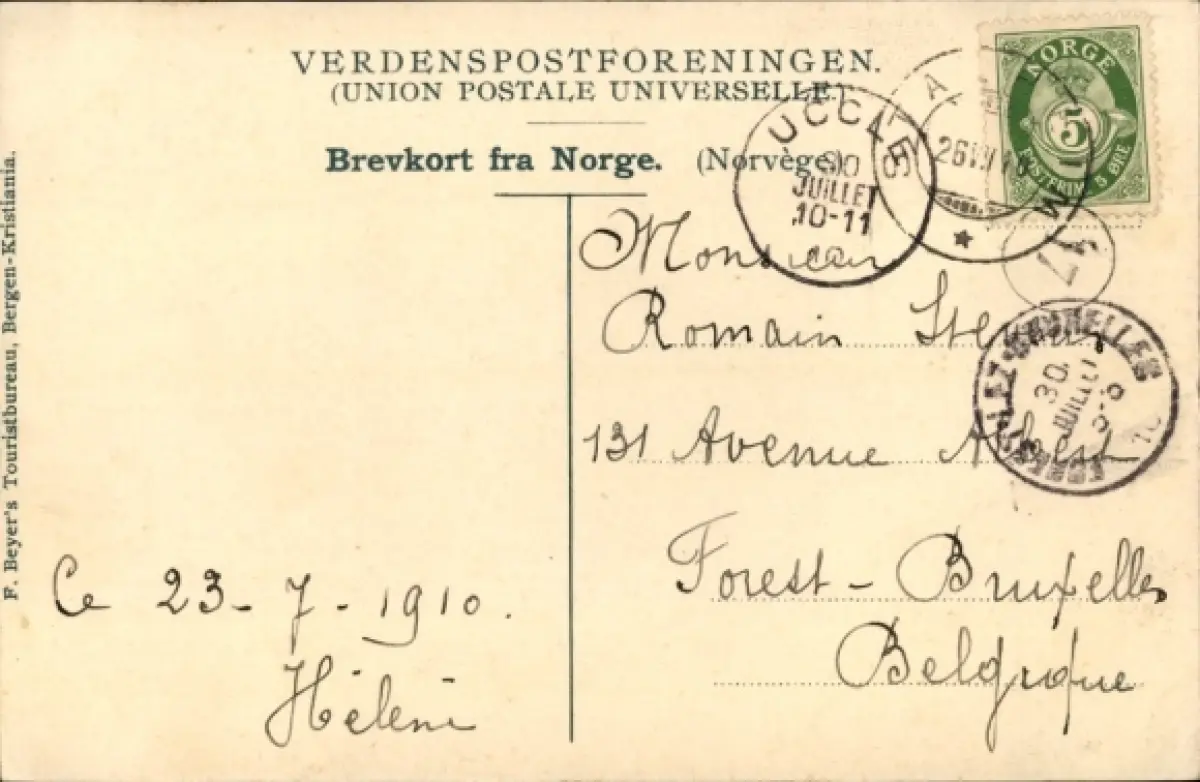 VERDENSPOSTFORENINGEN.
(UNION POSTALE UNIVERSELLE.)
Brevkort fra Norge. (Norvège.)
NORGE
5
POSTFRIM 5 ØRE
UCCLE
30
JUILLET
10-11
26 VII 10
Monsieur
Romain
131 Avenue Albert
Forest - Bruxelles
Belgique
BRUXELLES
30
JUILLET
Ce 23-7-1910.
Hélène
F. Beyer's Touristbureau, Bergen-Kristiania.